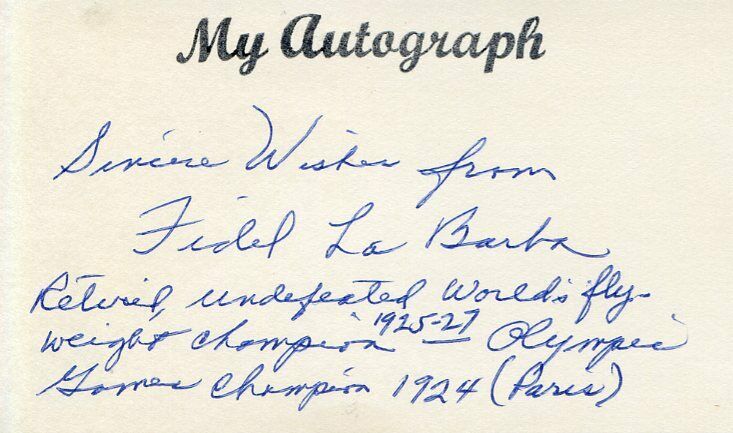 My Autograph
Sincere Wishes from
Fidel La Barba
Retired, undefeated World's fly-
weight champion 1925-27 — Olympic
Games Champion 1924 (Paris)